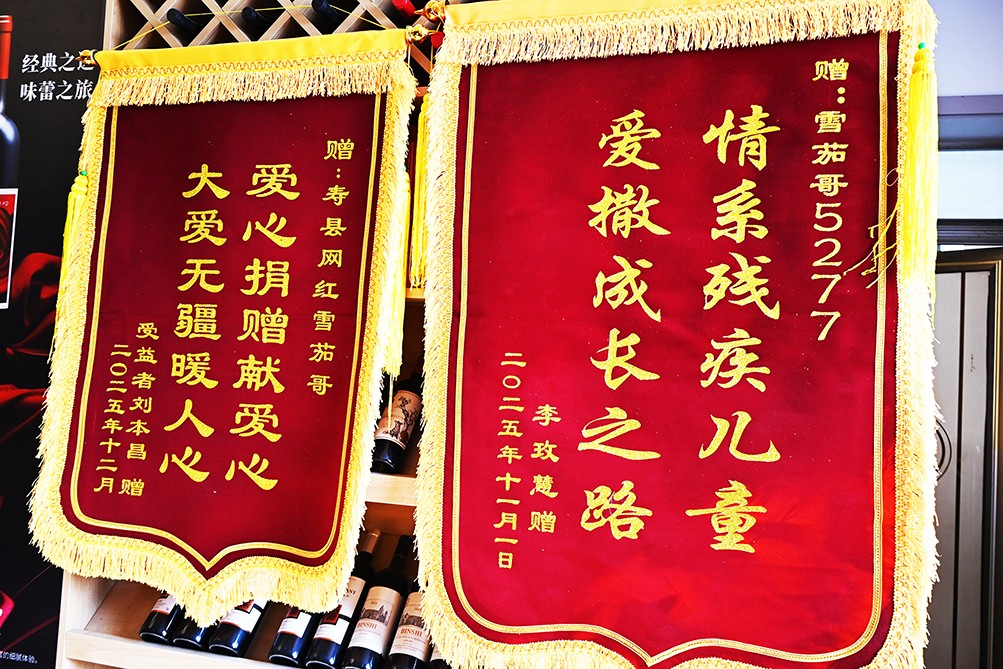 经典之
味蕾之旅
赠：寿县网红雪茄哥
爱心捐赠献爱心
大爱无疆暖人心
受益者刘本昌 赠
二〇二五年十二月
赠：雪茄哥5277
情系残疾儿童
爱撒成长之路
李玫慧赠
二〇二五年十一月一日
BINSHI
BINSHI
的细腻体验。